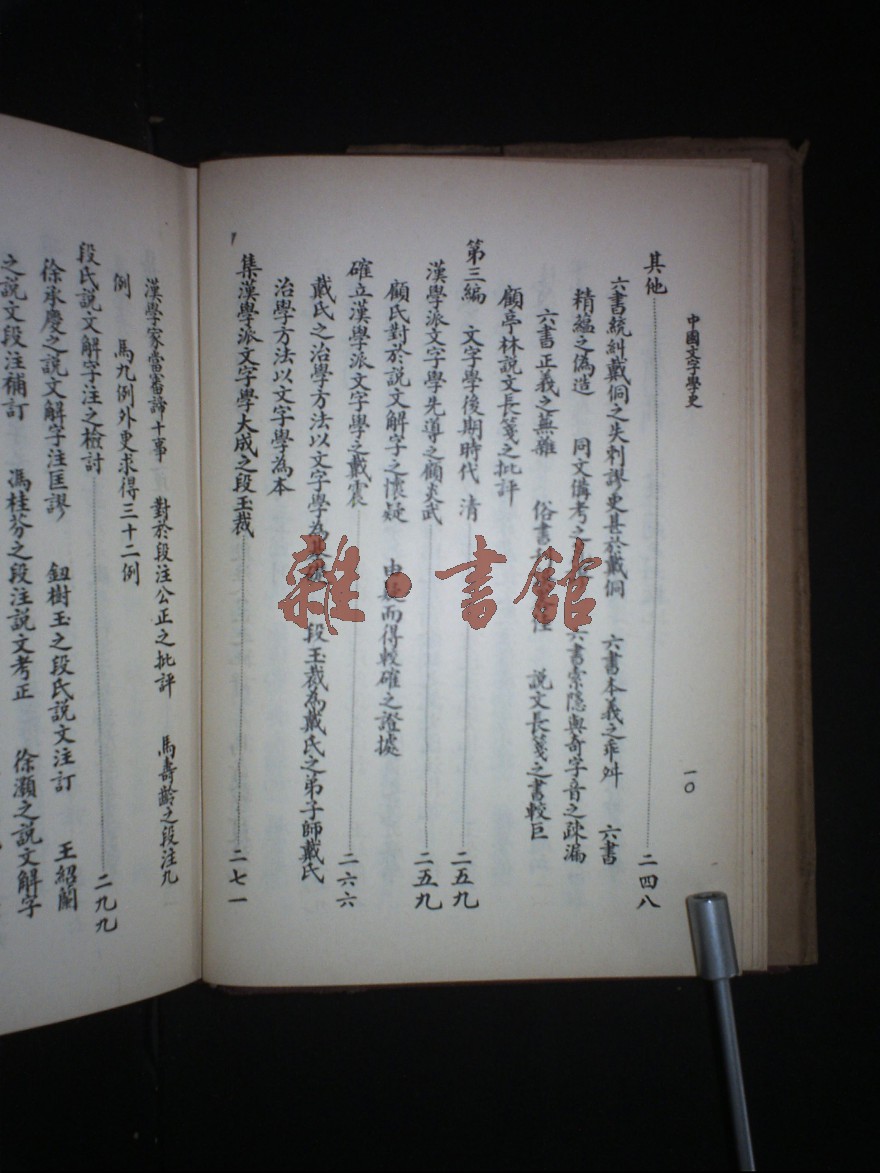 中國文字學史
一〇
其他 二四八
六書統糾戴侗之失刺謬更甚於戴侗 六書本義之乖舛 六書
精蘊之偽造 同文備考之 六書索隱與奇字音之疎漏
六書正義之無難 俗書 說文長箋之書較巨
顧亭林說文長箋之批評
第三編 文字學後期時代 清 二五九
漢學派文字學先導之顧炎武 二五九
顧氏對於說文解字之懷疑 由 而得較確之證據
確立漢學派文字學之戴震 二六六
戴氏之治學方法以文字學為 段玉裁為戴氏之弟子師戴氏
治學方法以文字學為本
集漢學派文字學大成之段玉裁 二七一
漢學家當審諦十事 對於段注公正之批評 馬壽齡之段注九
例 馬九例外更求得三十二例
段氏說文解字注之檢討 二九九
徐承慶之說文解字注匡謬 鈕樹玉之段氏說文注訂 王紹蘭
之說文段注補訂 馮桂芬之段注說文考正 徐灝之說文解字
雜·書館